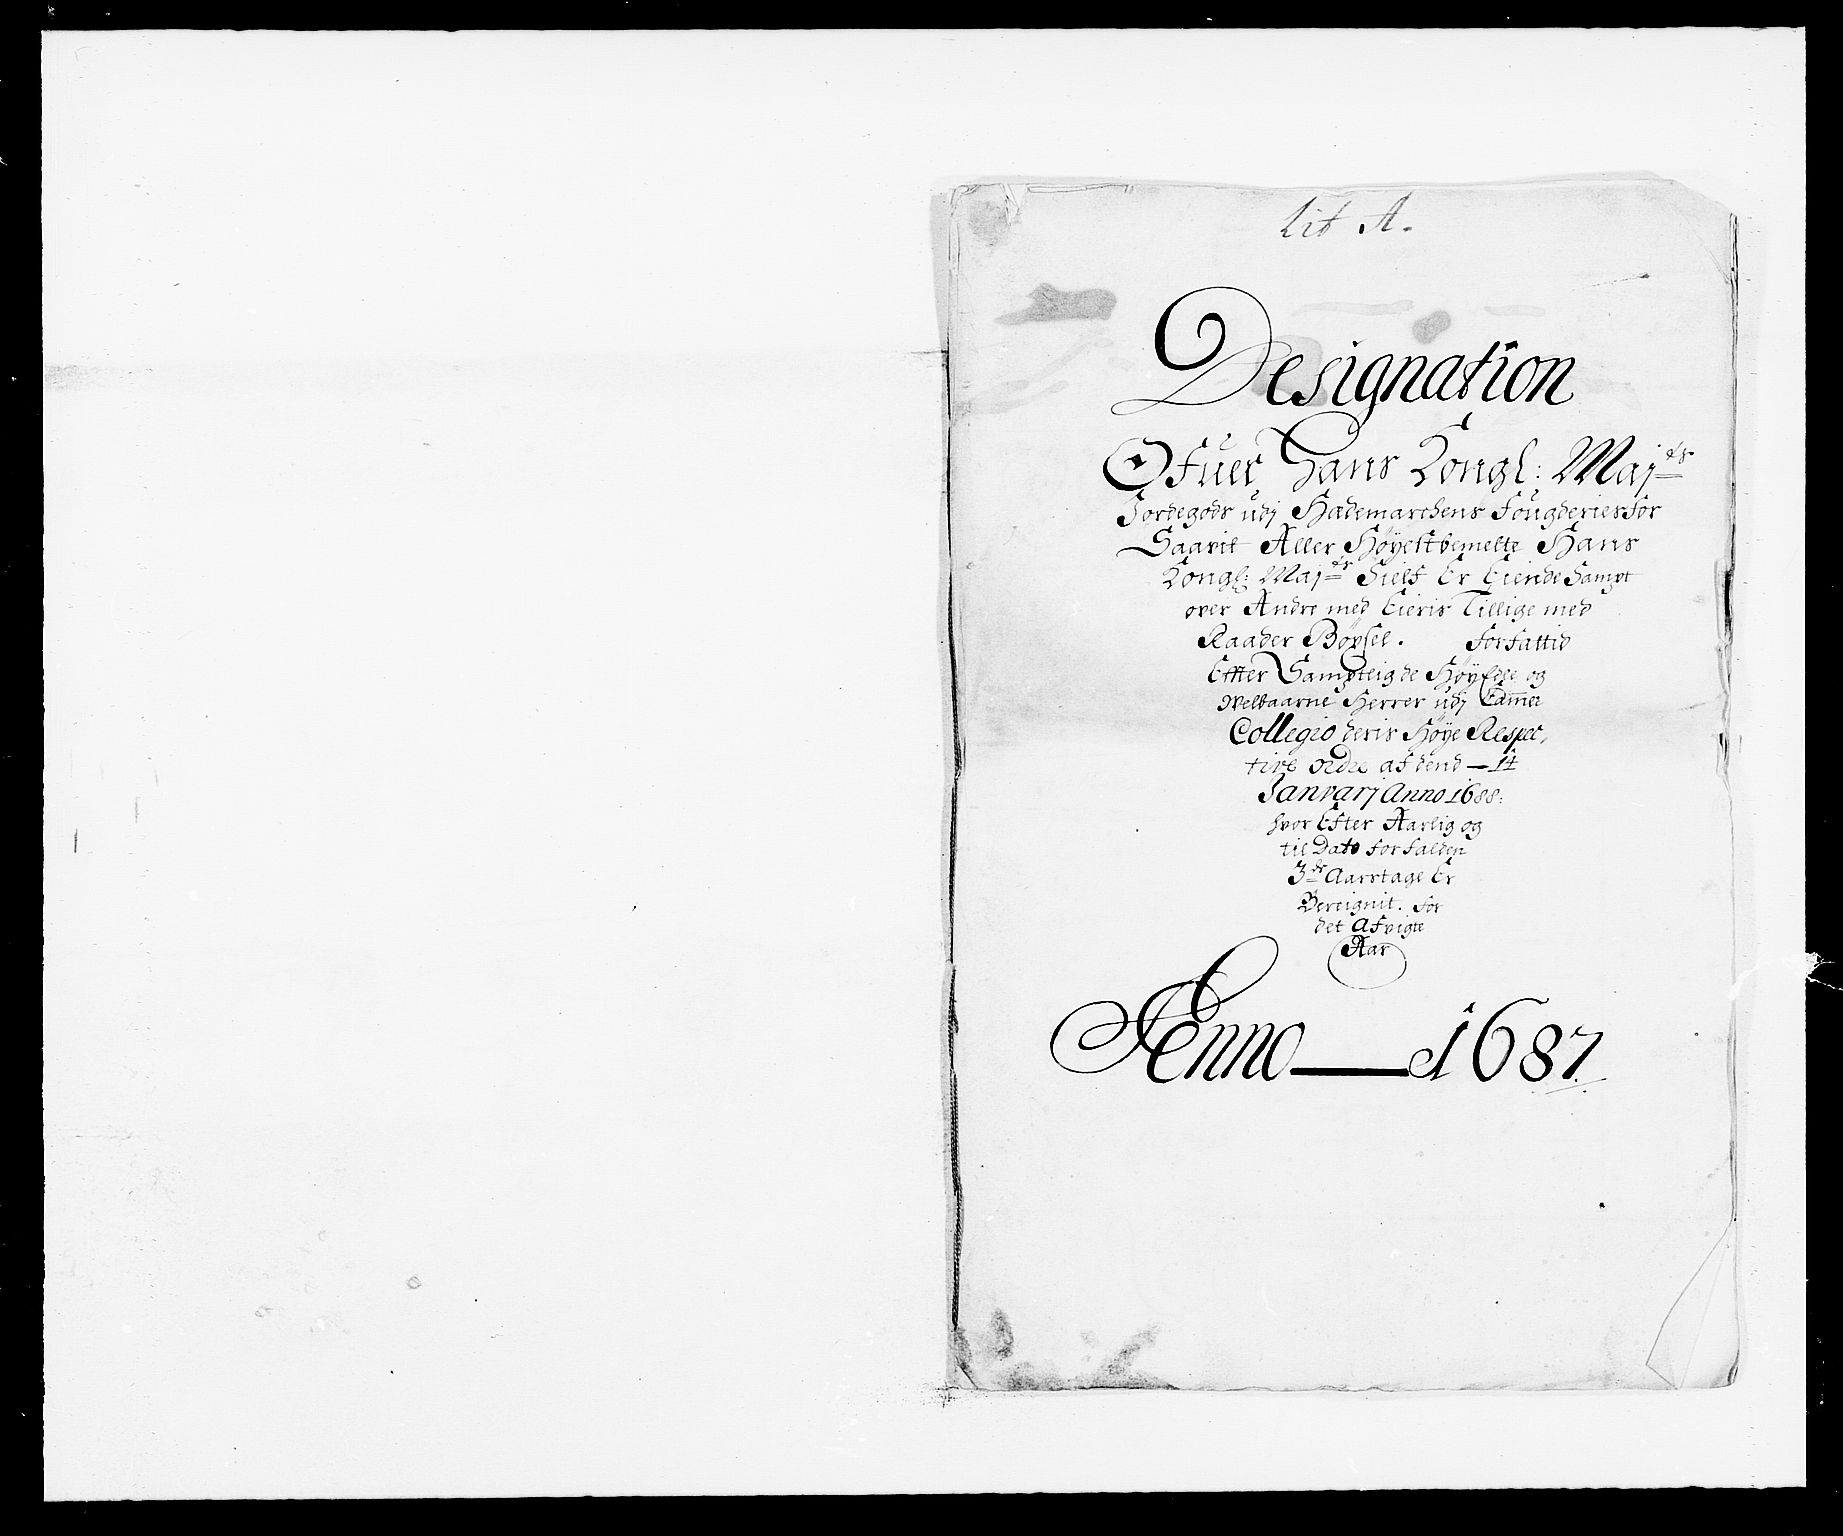 Lit A.
Designation
Ofuer Hans Kongl: Maj^ts
Jordegods udj Hædemarchens Fougderie for
Saavit Aller Høyestbemelte Hans
Kongl: Maj^ts Sielf Er Eiende Sampt
over Andre med Eieris Tillige med
Raader Bøxsel. forfattid
Effter Sampteig de Høy Edle og
Welbaarne Herrer udj Cammer
Collegio deris Høye Respec,
tive ordre af dend — 14
Januarj Anno 1688:
hvor Efter Aarlig og
til Dato forfalden
3^de Aarstage Er
Bereignit. for
det Afvigte
Aar
Anno — 1687.